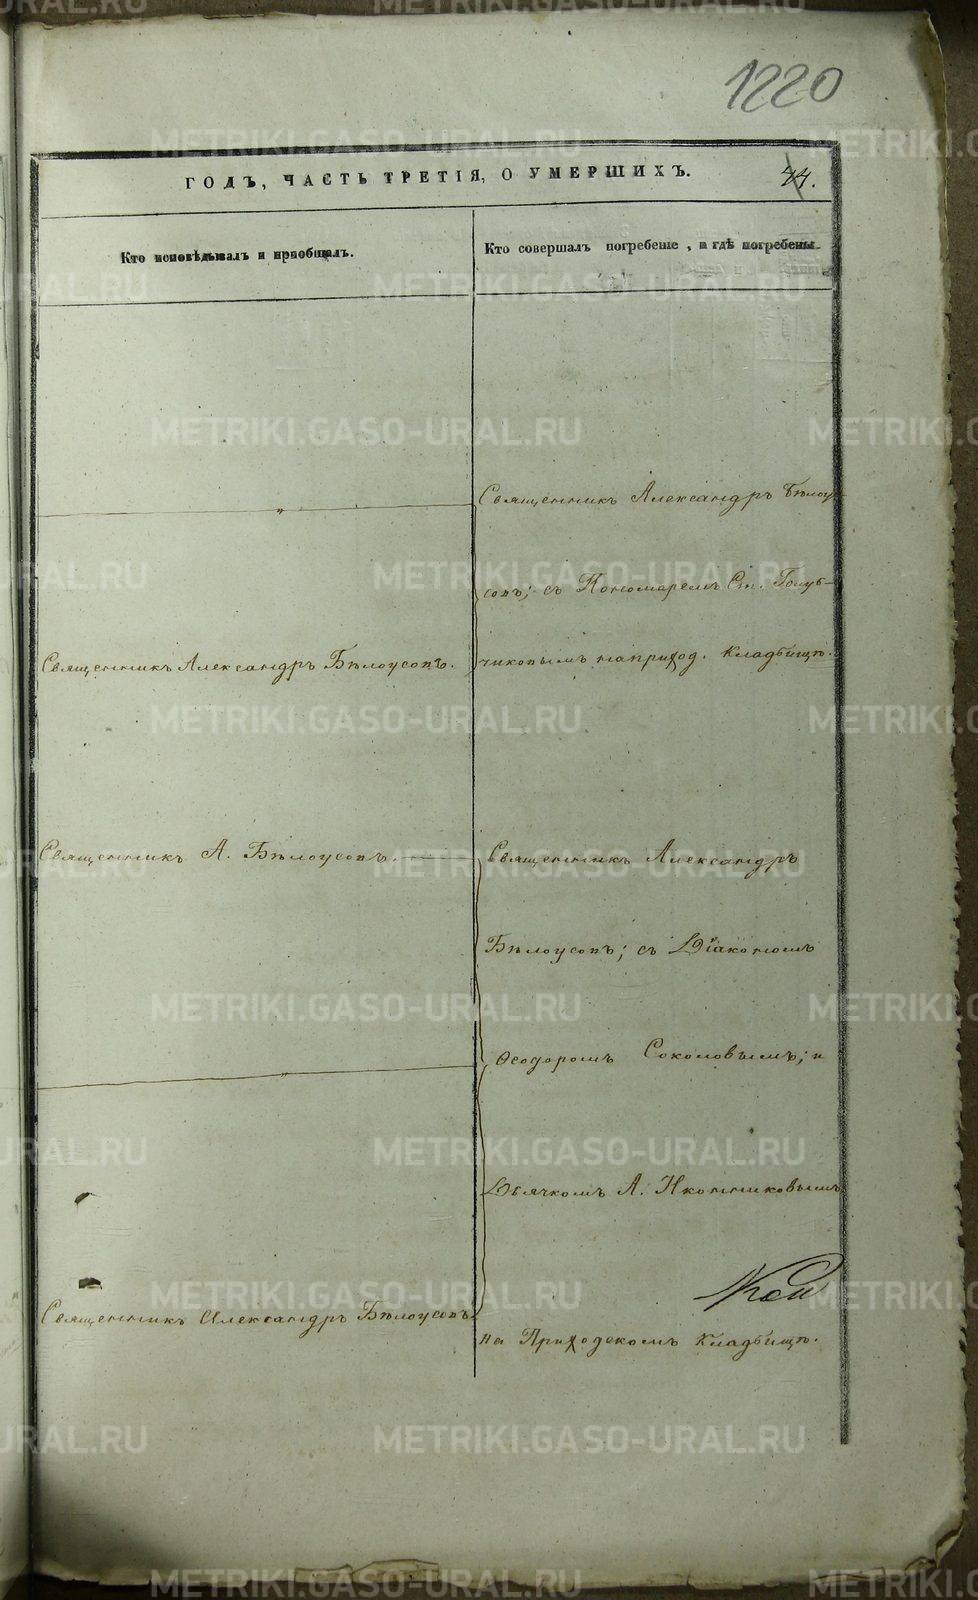 1220
ГОДЪ, ЧАСТЬ ТРЕТІЯ, О УМЕРШИХЪ.
Кто исповѣдывалъ и пріобщалъ.
Кто совершалъ погребеніе, и гдѣ погребены
Священникъ Александръ Бѣлоу-
совъ; съ Пономаремъ Ст. Голуб-
Священникъ Александръ Бѣлоусовъ.
чиковымъ на приход. кладбищѣ.
Священникъ А. Бѣлоусовъ.
Священникъ Александръ
Бѣлоусовъ; съ Діакономъ
Ѳеодоромъ Соколовымъ; и
Дьячкомъ А. Иконниковымъ
Священникъ Александръ Бѣлоусовъ.
на Приходскомъ кладбищѣ.
METRIKI.GASO-URAL.RU